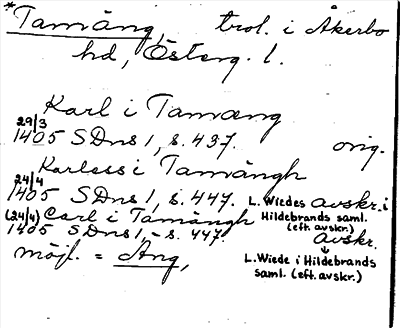 *Tamäng, trol. i Åkerbo
hd, Österg. l.
Karl i Tamæng
29/3
1405 SDns 1, s. 437. orig.
Karless i Tamängh
24/4
1405 SDns 1, s. 447. L. Wiedes avskr. i
Hildebrands saml.
(eft. avskr.)
(24/4) Carl i Tamängh
1405 SDns 1, - s. 447. avskr.
↓
L. Wiede i Hildebrands
saml. (eft. avskr.)
möjl. = Äng,